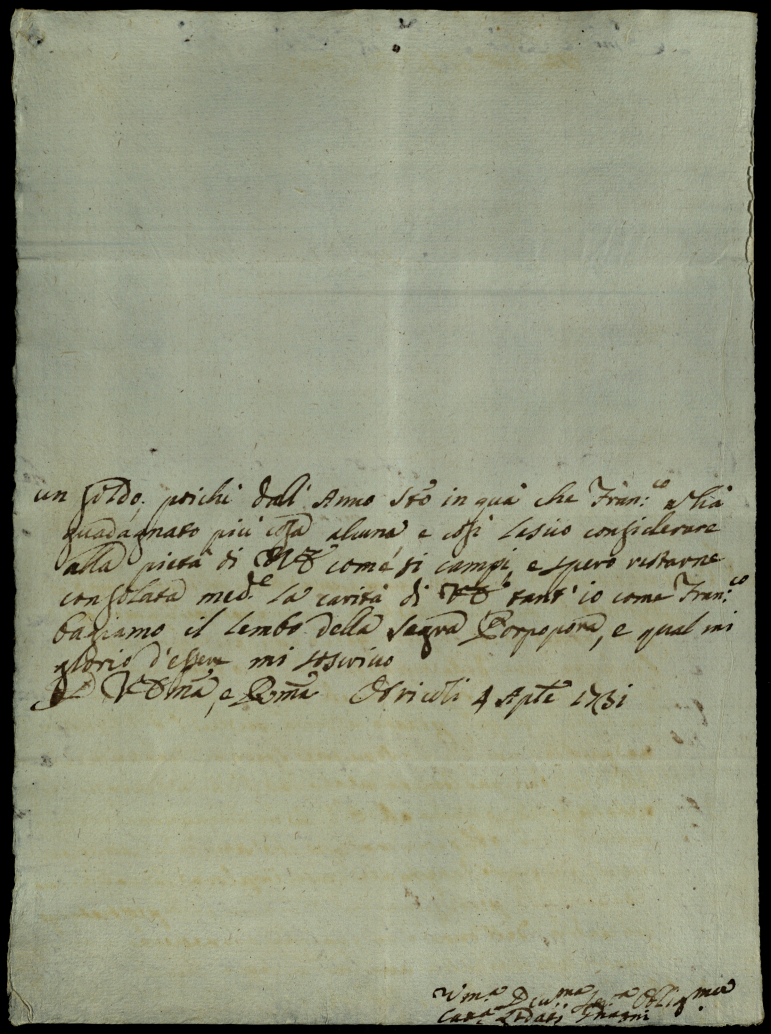 un soldo. poichi dall'Anno Sto in quà che Fran:co nō hà
guadagnato più cosa alcuna e cosi lascio considerare
alla pietà di VE come si campi, e spero restarne
consolata med.e la carità di VE tant'io come Fran:co
bagiamo il lembo della sagra Porpopora, e qual mi
glorio d'essere mi soscrivo
D VE ma, e Rma Otricoli 4 Aple 1731
Vm.a Deu.ma Ser.a Oblig.ma